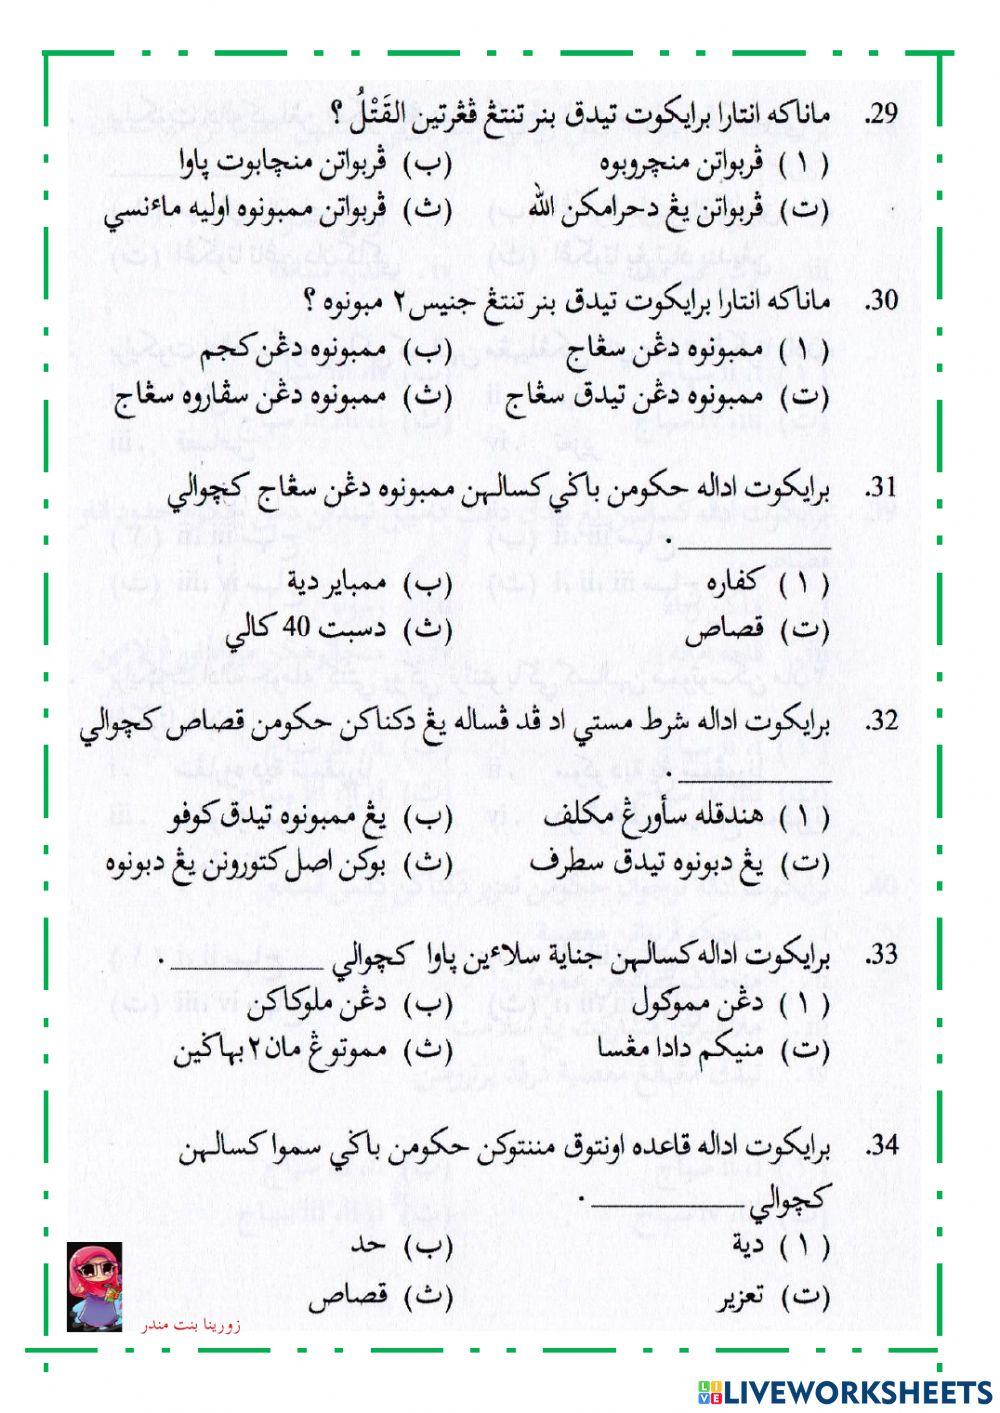 29. ماناكه انتارا برايكوت تيدق بنر تنتڠ ڤڠرتين القَتْلُ ؟
( ١ ) ڤربواتن منچروبوه (ب) ڤربواتن منچابوت ڽاوا
(ت) ڤربواتن يڠ دحرامكن الله (ث) ڤربواتن ممبونوه اوليه ماءنسي
30. ماناكه انتارا برايكوت تيدق بنر تنتڠ جنيس٢ مبونوه ؟
( ١ ) ممبونوه دڠن سڠاج (ب) ممبونوه دڠن كجم
(ت) ممبونوه دڠن تيدق سڠاج (ث) ممبونوه دڠن سڤاروه سڠاج
31. برايكوت اداله حكومن باݢي كسالهن ممبونوه دڠن سڠاج كچوالي
____________ .
( ١ ) كفاره (ب) ممباير دية
(ت) قصاص (ث) دسبت 40 كالي
32. برايكوت اداله شرط مستي اد ڤد ڤساله يڠ دكناكن حكومن قصاص كچوالي
____________ .
( ١ ) هندقله سأورڠ مكلف (ب) يڠ ممبونوه تيدق كوفو
(ت) يڠ دبونوه تيدق سطرف (ث) بوكن اصل كتورونن يڠ دبونوه
33. برايكوت اداله كسالهن جناية سلاءين ڽاوا كچوالي ____________ .
( ١ ) دڠن مموكول (ب) دڠن ملوكاكن
(ت) منيكم دادا مڠسا (ث) مموتوڠ مان٢ بهاݢين
34. برايكوت اداله قاعده اونتوق مننتوكن حكومن باݢي سموا كسالهن
كچوالي ____________ .
( ١ ) دية (ب) حد
(ت) تعزير (ث) قصاص
زورينا بنت مندر
LIVE LIVEWORKSHEETS